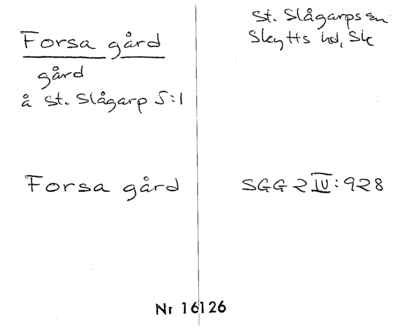 Forsa gård
gård
å St. Slågarp 5:1
St. Slågarps sn
Skytts hd, Sk
Forsa gård
SGG 2 IV: 928
Nr 16126